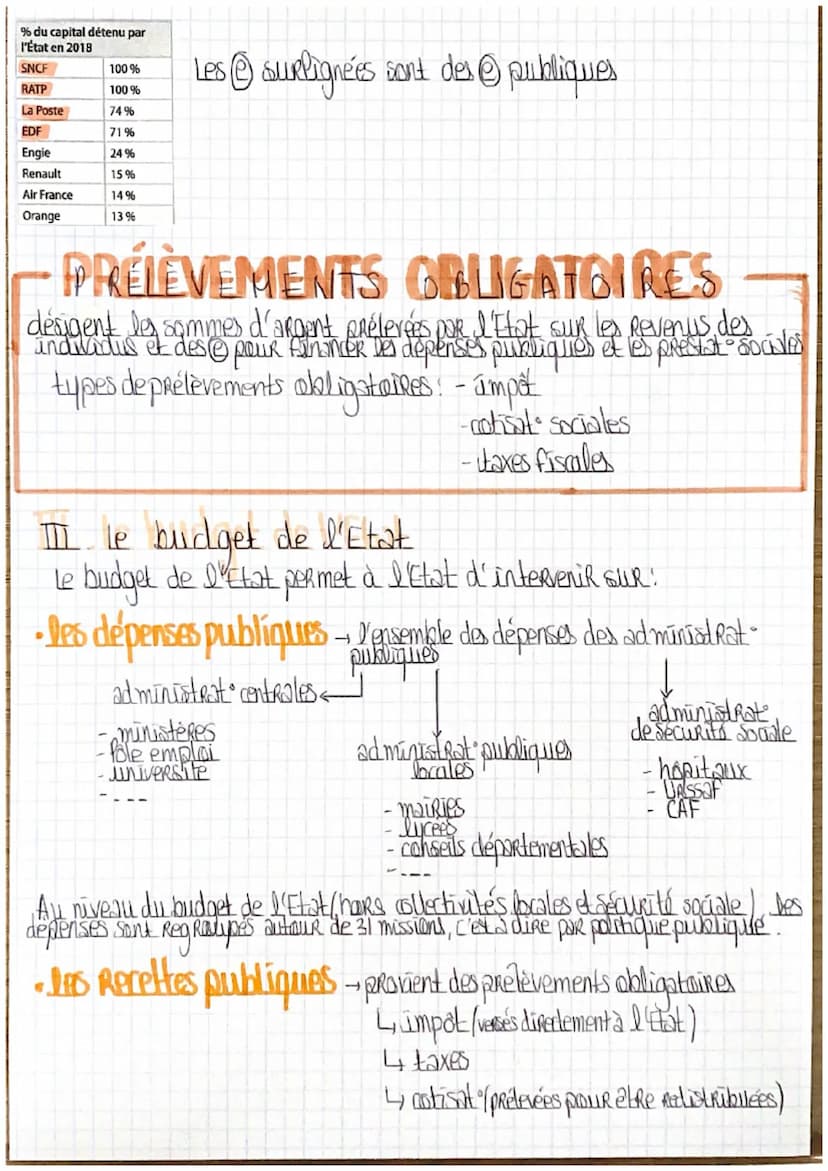 % du capital détenu par
l'État en 2018
SNCF 100 %
RATP 100 %
La Poste 74 %
EDF 71 %
Engie 24 %
Renault 15 %
Air France 14 %
Orange 13 %
Les ⓔ surlignées sont des ⓔ publiques
PRÉLÈVEMENTS OBLIGATOIRES
désigent les sommes d'argent prélevées par l'Etat sur les revenus des
individus et des ⓔ pour financer les dépenses publiques et les prestat° sociales
types de prélèvements obligatoires : - impôt
- cotisat° sociales
- taxes fiscales
III. le budget de l'Etat
Le budget de l'Etat permet à l'Etat d'intervenir sur :
• les dépenses publiques → l'ensemble des dépenses des administrat°
publiques
administrat° centrales
- ministères
- Pôle emploi
- université
- ----
administrat° publiques
locales
- mairies
- lycées
- conseils départementales
- ----
administrat°
de sécurité sociale
- hôpitaux
- URSSAF
- CAF
Au niveau du budget de l'Etat (hors collectivités locales et sécurité sociale), les
dépenses sont regroupés autour de 31 missions, c'est à dire par politique publique.
• les recettes publiques → provient des prélèvements obligatoires
↳ impôt (versés directement à l'Etat)
↳ taxes
↳ cotisat° (prélevées pour être redistribuées)